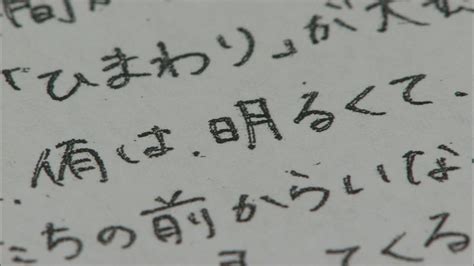 間
「ひまわり」が大
侑は、明るくて、
たちの前からいな
てくる